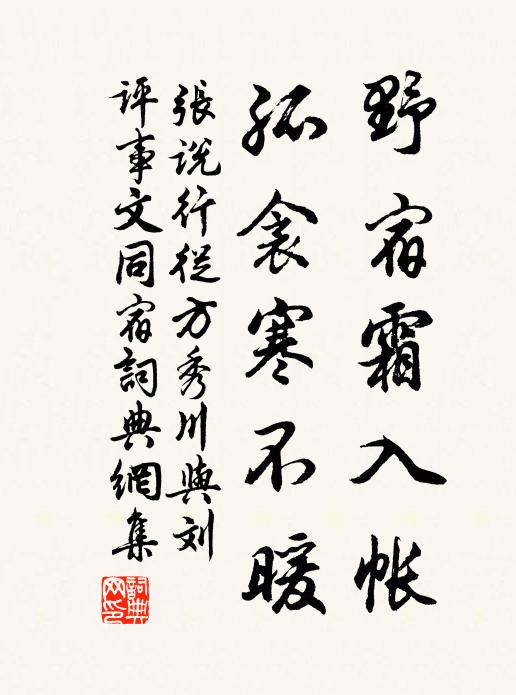 野宿霜入帐
孤衾寒不暖
張說行從方秀川與刘
评事文同宿詞典網集
詞典
网印